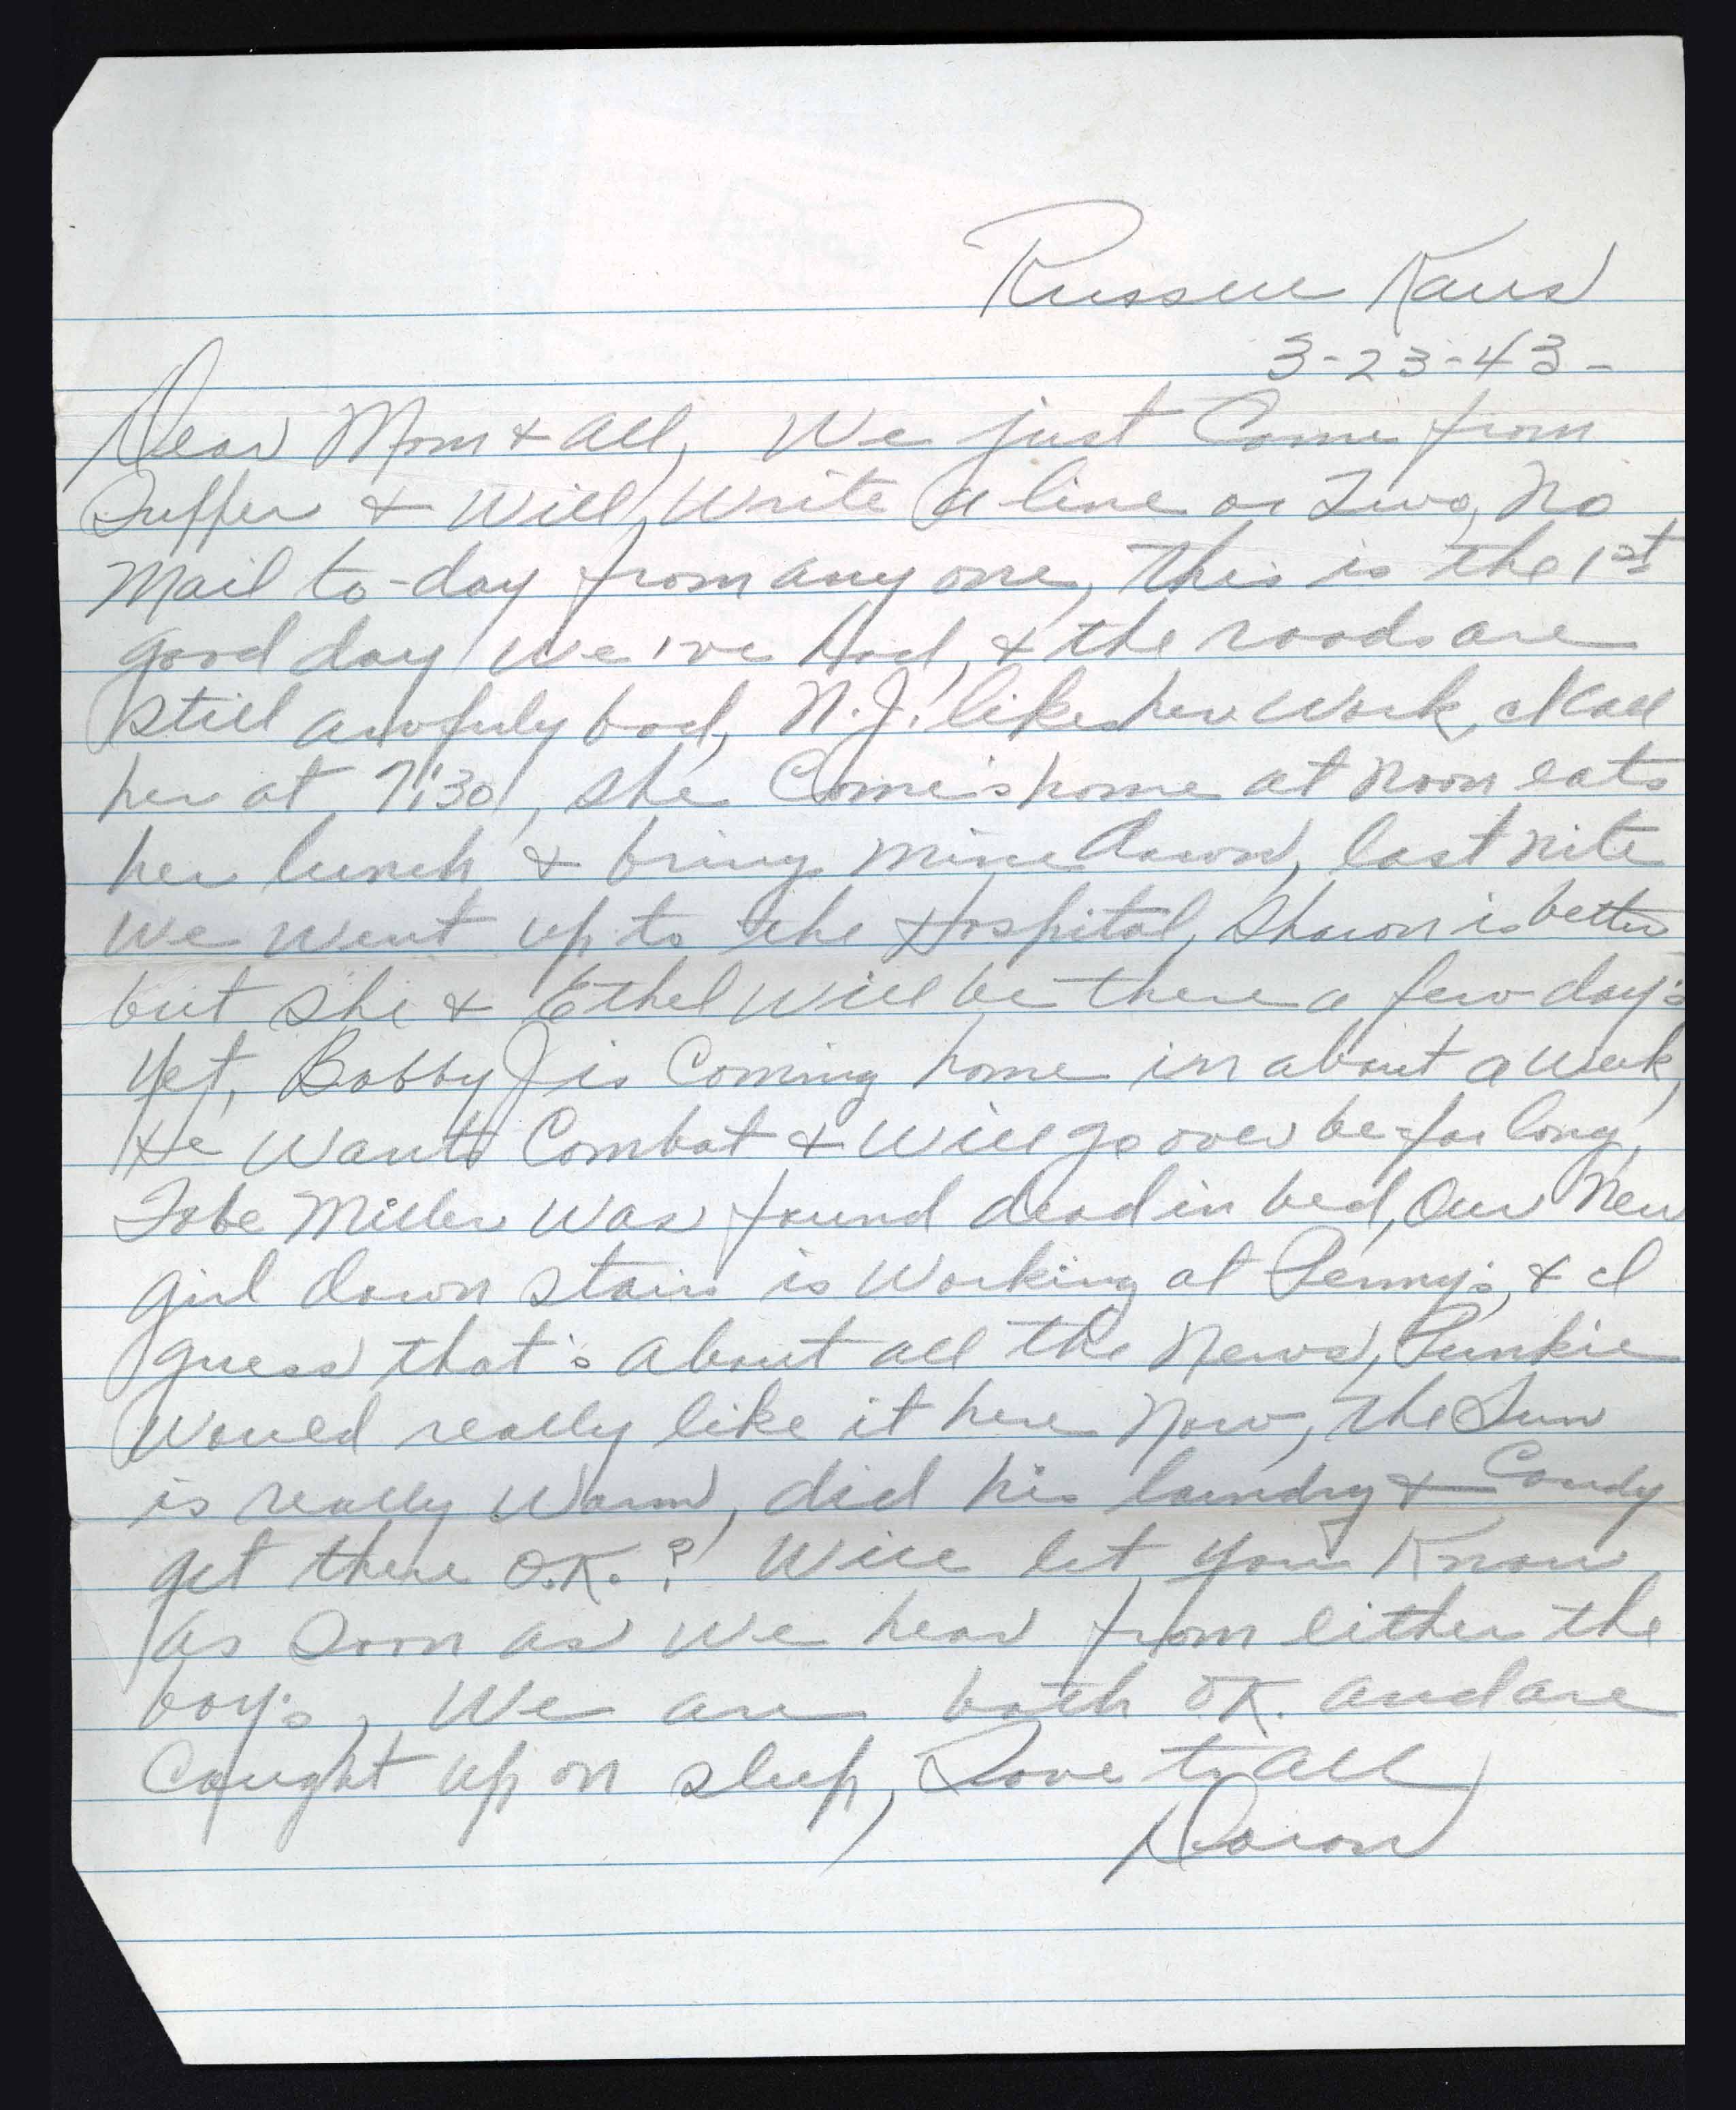 Russell Kans
3-23-43-
Dear Mom & all, We just Come from
Supper & Will Write a line or Two, No
Mail to-day from any one, This is the 1st
good day we've had, & the roads are
still awfuly bad, N.J. likes her Work, I Call
her at 7:30, she Come's home at Noon eats
her lunch & bring mine down, last nite
we went up to the Hospital, Sharon is better
but she & Ethel will be there a few day's
Yet, Bobby J is Coming home in about a week,
He Wants Combat & Will go over be-for long,
Tobe Miller Was found dead in bed, Our New
girl down stairs is Working at Penny's, & I
guess that's about all the News, Punkie
Would really like it here Now, the Sun
is really Warm, did his laundry & Candy
get there O.K.? Will let you Know
as Soon as We hear from either the
boy's, We are both O.K. and are
Caught up on sleep, Love to all